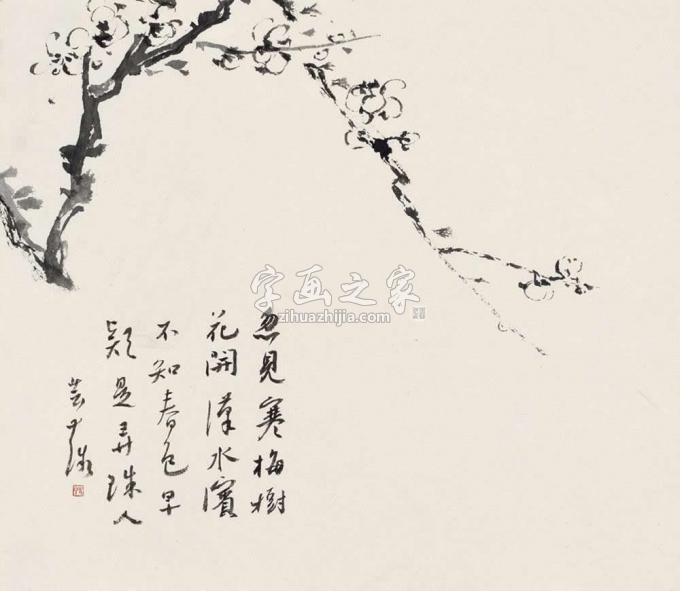 忽見寒梅樹
花開漢水濱
不知春色早
疑是弄珠人
字画之家
zihuazhijia.com